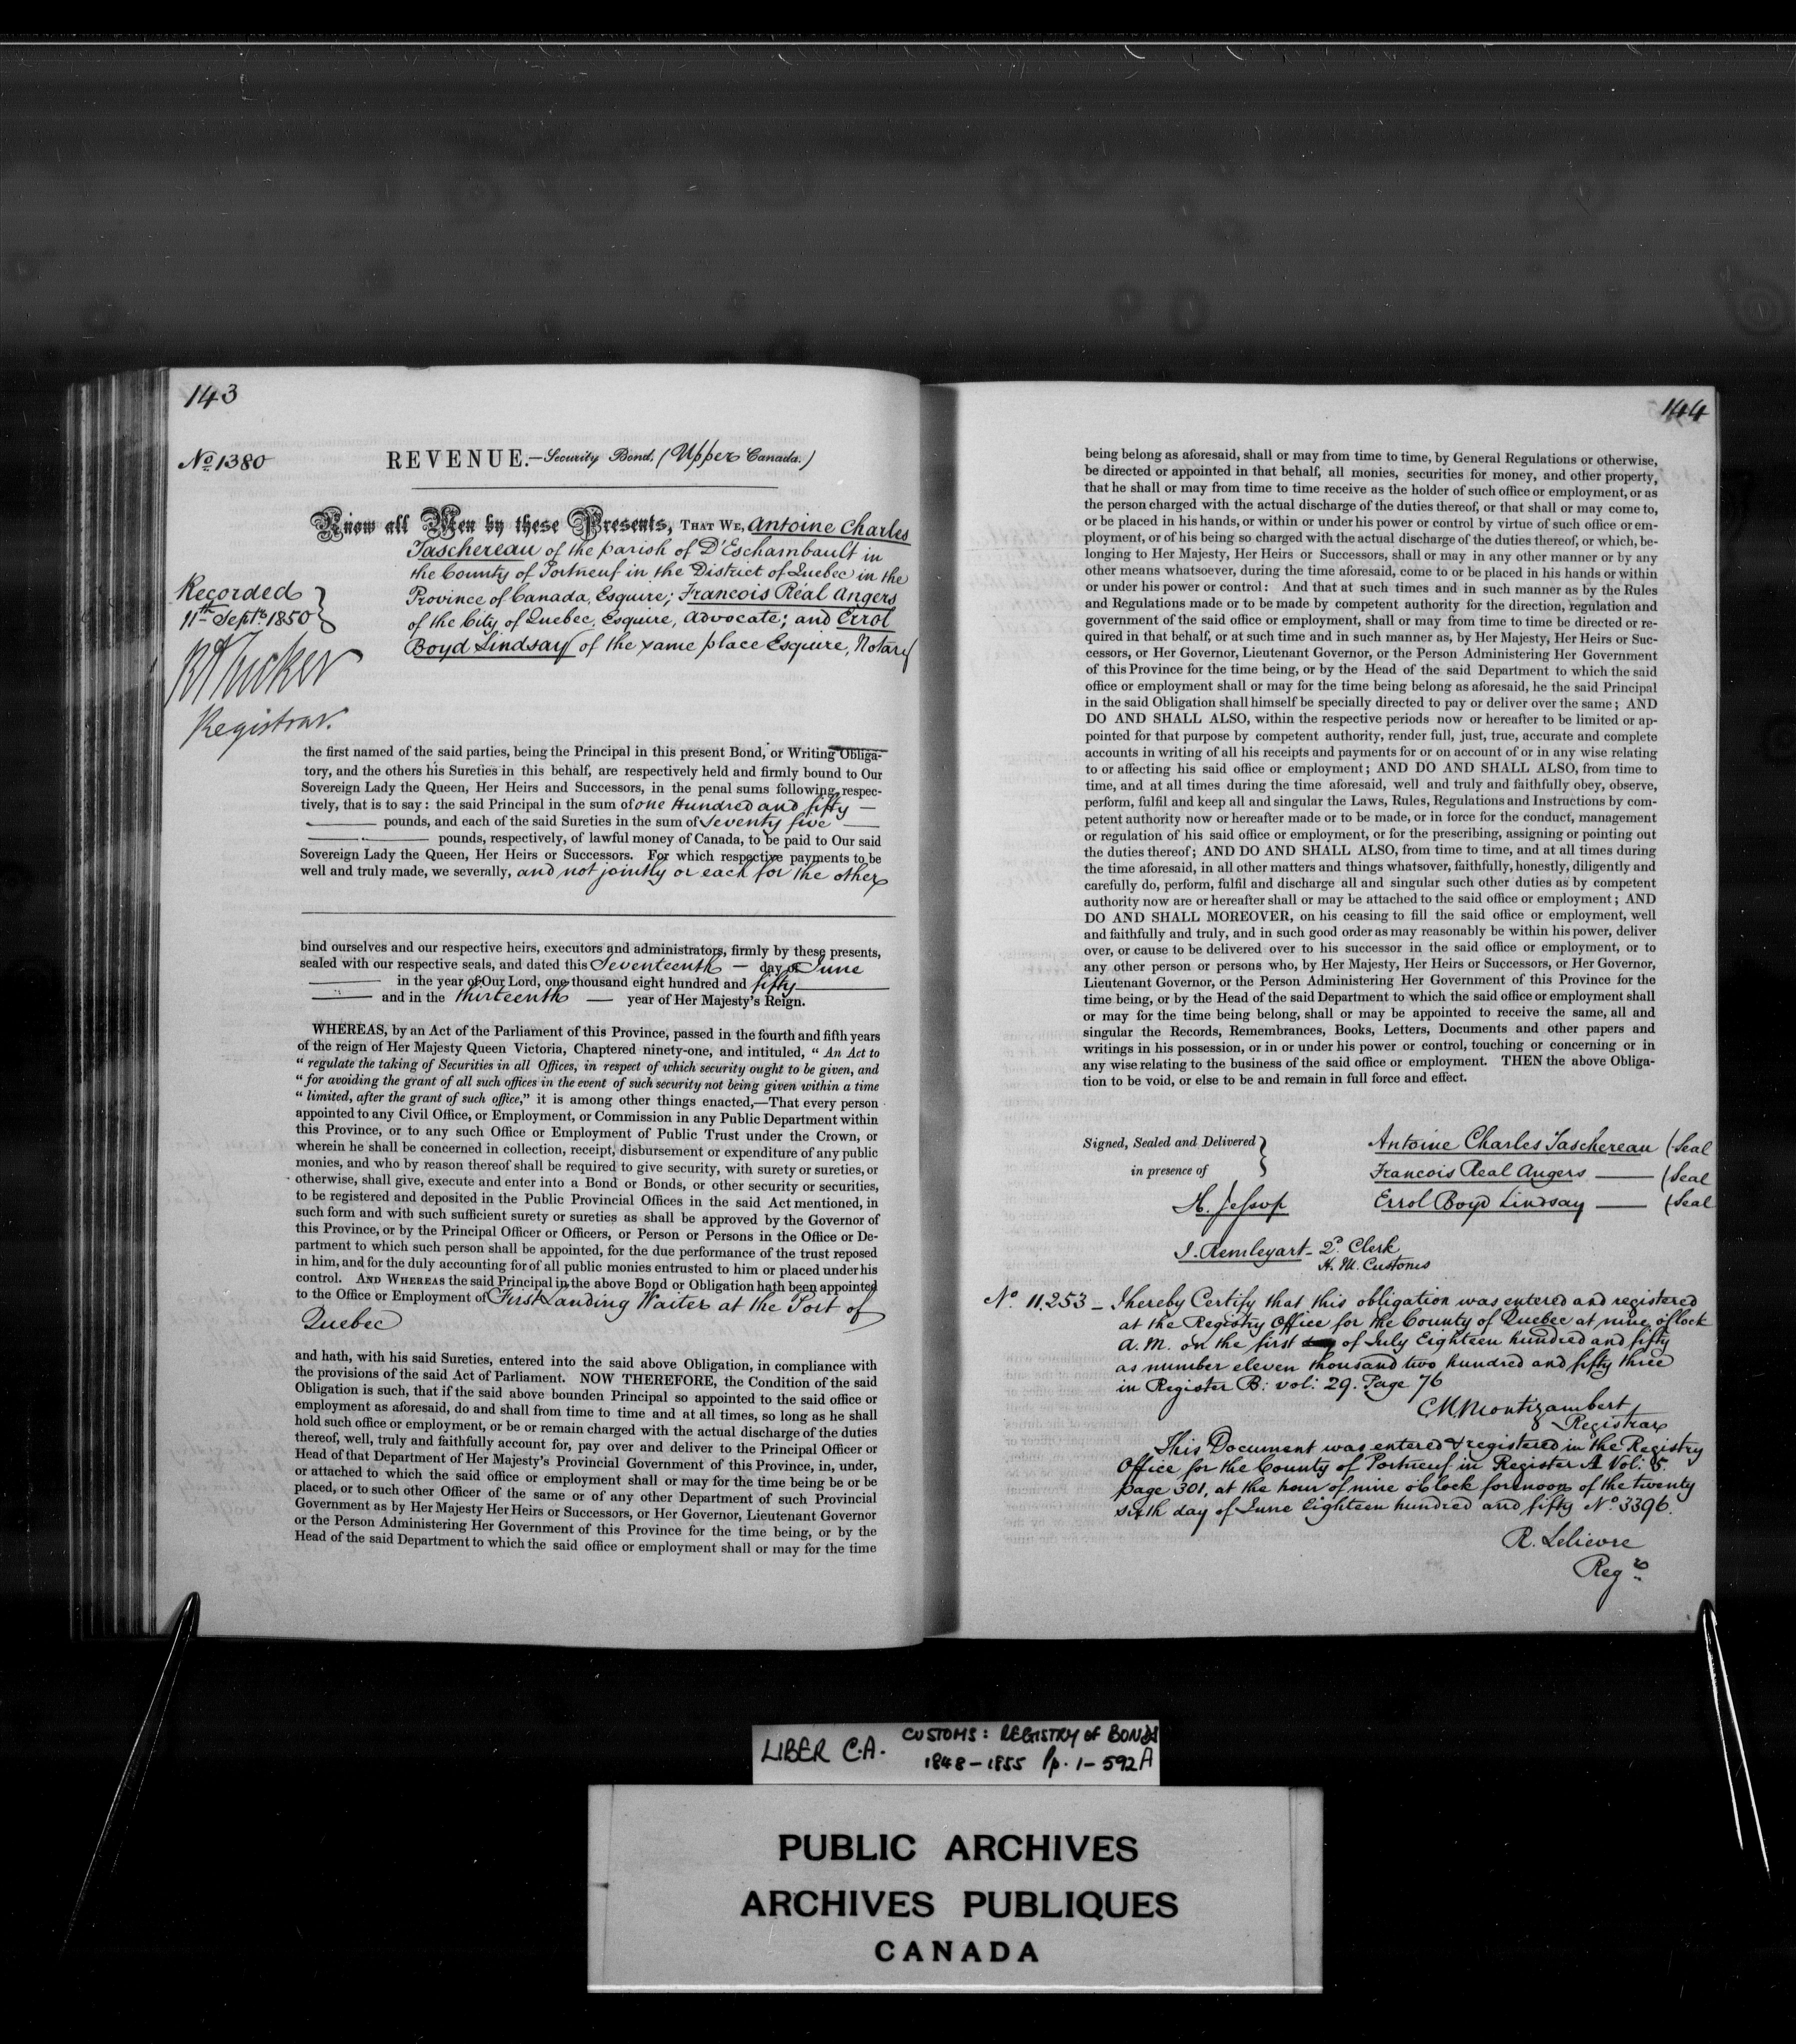 143
No 1380
REVENUE.—Security Bond. (Upper Canada.)
Know all Men by these Presents, THAT WE, Antoine Charles
Taschereau of the parish of D'Eschambault in
the County of Portneuf in the District of Quebec in the
Province of Canada, Esquire; Francois Réal Angers
of the City of Quebec, Esquire, Advocate; and Errol
Boyd Lindsay of the same place Esquire, Notary
Recorded
11th Septr 1850
Tucker
Registrar.
the first named of the said parties, being the Principal in this present Bond, or Writing Obliga-
tory, and the others his Sureties in this behalf, are respectively held and firmly bound to Our
Sovereign Lady the Queen, Her Heirs and Successors, in the penal sums following, respec-
tively, that is to say: the said Principal in the sum of one Hundred and fifty —
— pounds, and each of the said Sureties in the sum of Seventy five —
— pounds, respectively, of lawful money of Canada, to be paid to Our said
Sovereign Lady the Queen, Her Heirs or Successors. For which respective payments to be
well and truly made, we severally, and not jointly or each for the other
bind ourselves and our respective heirs, executors and administrators, firmly by these presents,
sealed with our respective seals, and dated this Seventeenth — day of June
— in the year of Our Lord, one thousand eight hundred and fifty —
— and in the thirteenth — year of Her Majesty's Reign.
WHEREAS, by an Act of the Parliament of this Province, passed in the fourth and fifth years
of the reign of Her Majesty Queen Victoria, Chaptered ninety-one, and intituled, " An Act to
" regulate the taking of Securities in all Offices, in respect of which security ought to be given, and
" for avoiding the grant of all such offices in the event of such security not being given within a time
" limited, after the grant of such office," it is among other things enacted,—That every person
appointed to any Civil Office, or Employment, or Commission in any Public Department within
this Province, or to any such Office or Employment of Public Trust under the Crown, or
wherein he shall be concerned in collection, receipt, disbursement or expenditure of any public
monies, and who by reason thereof shall be required to give security, with surety or sureties, or
otherwise, shall give, execute and enter into a Bond or Bonds, or other security or securities,
to be registered and deposited in the Public Provincial Offices in the said Act mentioned, in
such form and with such sufficient surety or sureties as shall be approved by the Governor of
this Province, or by the Principal Officer or Officers, or Person or Persons in the Office or De-
partment to which such person shall be appointed, for the due performance of the trust reposed
in him, and for the duly accounting for of all public monies entrusted to him or placed under his
control. AND WHEREAS the said Principal in the above Bond or Obligation hath been appointed
to the Office or Employment of First Landing Waiter at the Port of
Quebec
and hath, with his said Sureties, entered into the said above Obligation, in compliance with
the provisions of the said Act of Parliament. NOW THEREFORE, the Condition of the said
Obligation is such, that if the said above bounden Principal so appointed to the said office or
employment as aforesaid, do and shall from time to time and at all times, so long as he shall
hold such office or employment, or be or remain charged with the actual discharge of the duties
thereof, well, truly and faithfully account for, pay over and deliver to the Principal Officer or
Head of that Department of Her Majesty's Provincial Government of this Province, in, under,
or attached to which the said office or employment shall or may for the time being be or be
placed, or to such other Officer of the same or of any other Department of such Provincial
Government as by Her Majesty Her Heirs or Successors, or Her Governor, Lieutenant Governor
or the Person Administering Her Government of this Province for the time being, or by the
Head of the said Department to which the said office or employment shall or may for the time
144
being belong as aforesaid, shall or may from time to time, by General Regulations or otherwise,
be directed or appointed in that behalf, all monies, securities for money, and other property,
that he shall or may from time to time receive as the holder of such office or employment, or as
the person charged with the actual discharge of the duties thereof, or that shall or may come to,
or be placed in his hands, or within or under his power or control by virtue of such office or em-
ployment, or of his being so charged with the actual discharge of the duties thereof, or which, be-
longing to Her Majesty, Her Heirs or Successors, shall or may in any other manner or by any
other means whatsoever, during the time aforesaid, come to or be placed in his hands or within
or under his power or control: And that at such times and in such manner as by the Rules
and Regulations made or to be made by competent authority for the direction, regulation and
government of the said office or employment, shall or may from time to time be directed or re-
quired in that behalf, or at such time and in such manner as, by Her Majesty, Her Heirs or Suc-
cessors, or Her Governor, Lieutenant Governor, or the Person Administering Her Government
of this Province for the time being, or by the Head of the said Department to which the said
office or employment shall or may for the time being belong as aforesaid, he the said Principal
in the said Obligation shall himself be specially directed to pay or deliver over the same; AND
DO AND SHALL ALSO, within the respective periods now or hereafter to be limited or ap-
pointed for that purpose by competent authority, render full, just, true, accurate and complete
accounts in writing of all his receipts and payments for or on account of or in any wise relating
to or affecting his said office or employment; AND DO AND SHALL ALSO, from time to
time, and at all times during the time aforesaid, well and truly and faithfully obey, observe,
perform, fulfil and keep all and singular the Laws, Rules, Regulations and Instructions by com-
petent authority now or hereafter made or to be made, or in force for the conduct, management
or regulation of his said office or employment, or for the prescribing, assigning or pointing out
the duties thereof; AND DO AND SHALL ALSO, from time to time, and at all times during
the time aforesaid, in all other matters and things whatsoever, faithfully, honestly, diligently and
carefully do, perform, fulfil and discharge all and singular such other duties as by competent
authority now are or hereafter shall or may be attached to the said office or employment; AND
DO AND SHALL MOREOVER, on his ceasing to fill the said office or employment, well
and faithfully and truly, and in such good order as may reasonably be within his power, deliver
over, or cause to be delivered over to his successor in the said office or employment, or to
any other person or persons who, by Her Majesty, Her Heirs or Successors, or Her Governor,
Lieutenant Governor, or the Person Administering Her Government of this Province for the
time being, or by the Head of the said Department to which the said office or employment shall
or may for the time being belong, shall or may be appointed to receive the same, all and
singular the Records, Remembrances, Books, Letters, Documents and other papers and
writings in his possession, or in or under his power or control, touching or concerning or in
any wise relating to the business of the said office or employment. THEN the above Obliga-
tion to be void, or else to be and remain in full force and effect.
Signed, Sealed and Delivered
in presence of
Antoine Charles Taschereau (Seal
Francois Real Angers — (Seal
Errol Boyd Lindsay — (Seal
H. Jessop
Clerk
H. M. Customs
No. 11,253 — I hereby Certify that this obligation was entered and registered
at the Registry Office for the County of Quebec at nine o'Clock
A.M. on the first of July Eighteen hundred and fifty
as number eleven thousand two hundred and fifty three
in Register B: vol: 29. Page 76
C M Montizambert
Registrar
This Document was entered & registered in the Registry
Office for the County of Portneuf in Register A Vol: 5.
page 301, at the hour of nine o'Clock forenoon of the twenty
sixth day of June Eighteen hundred and fifty No. 3396.
R. Lelievre
Regr
LIBER C.A. CUSTOMS: REGISTRY OF BONDS
1848–1855 Pp. 1–592A
PUBLIC ARCHIVES
ARCHIVES PUBLIQUES
CANADA